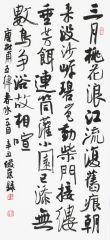 三月桃花浪江流復舊痕朝
来没沙尾碧色動柴門接縷
垂芳餌連筒灌小園已添無
數鳥爭浴故相喧
杜甫五律春水一首辛丑